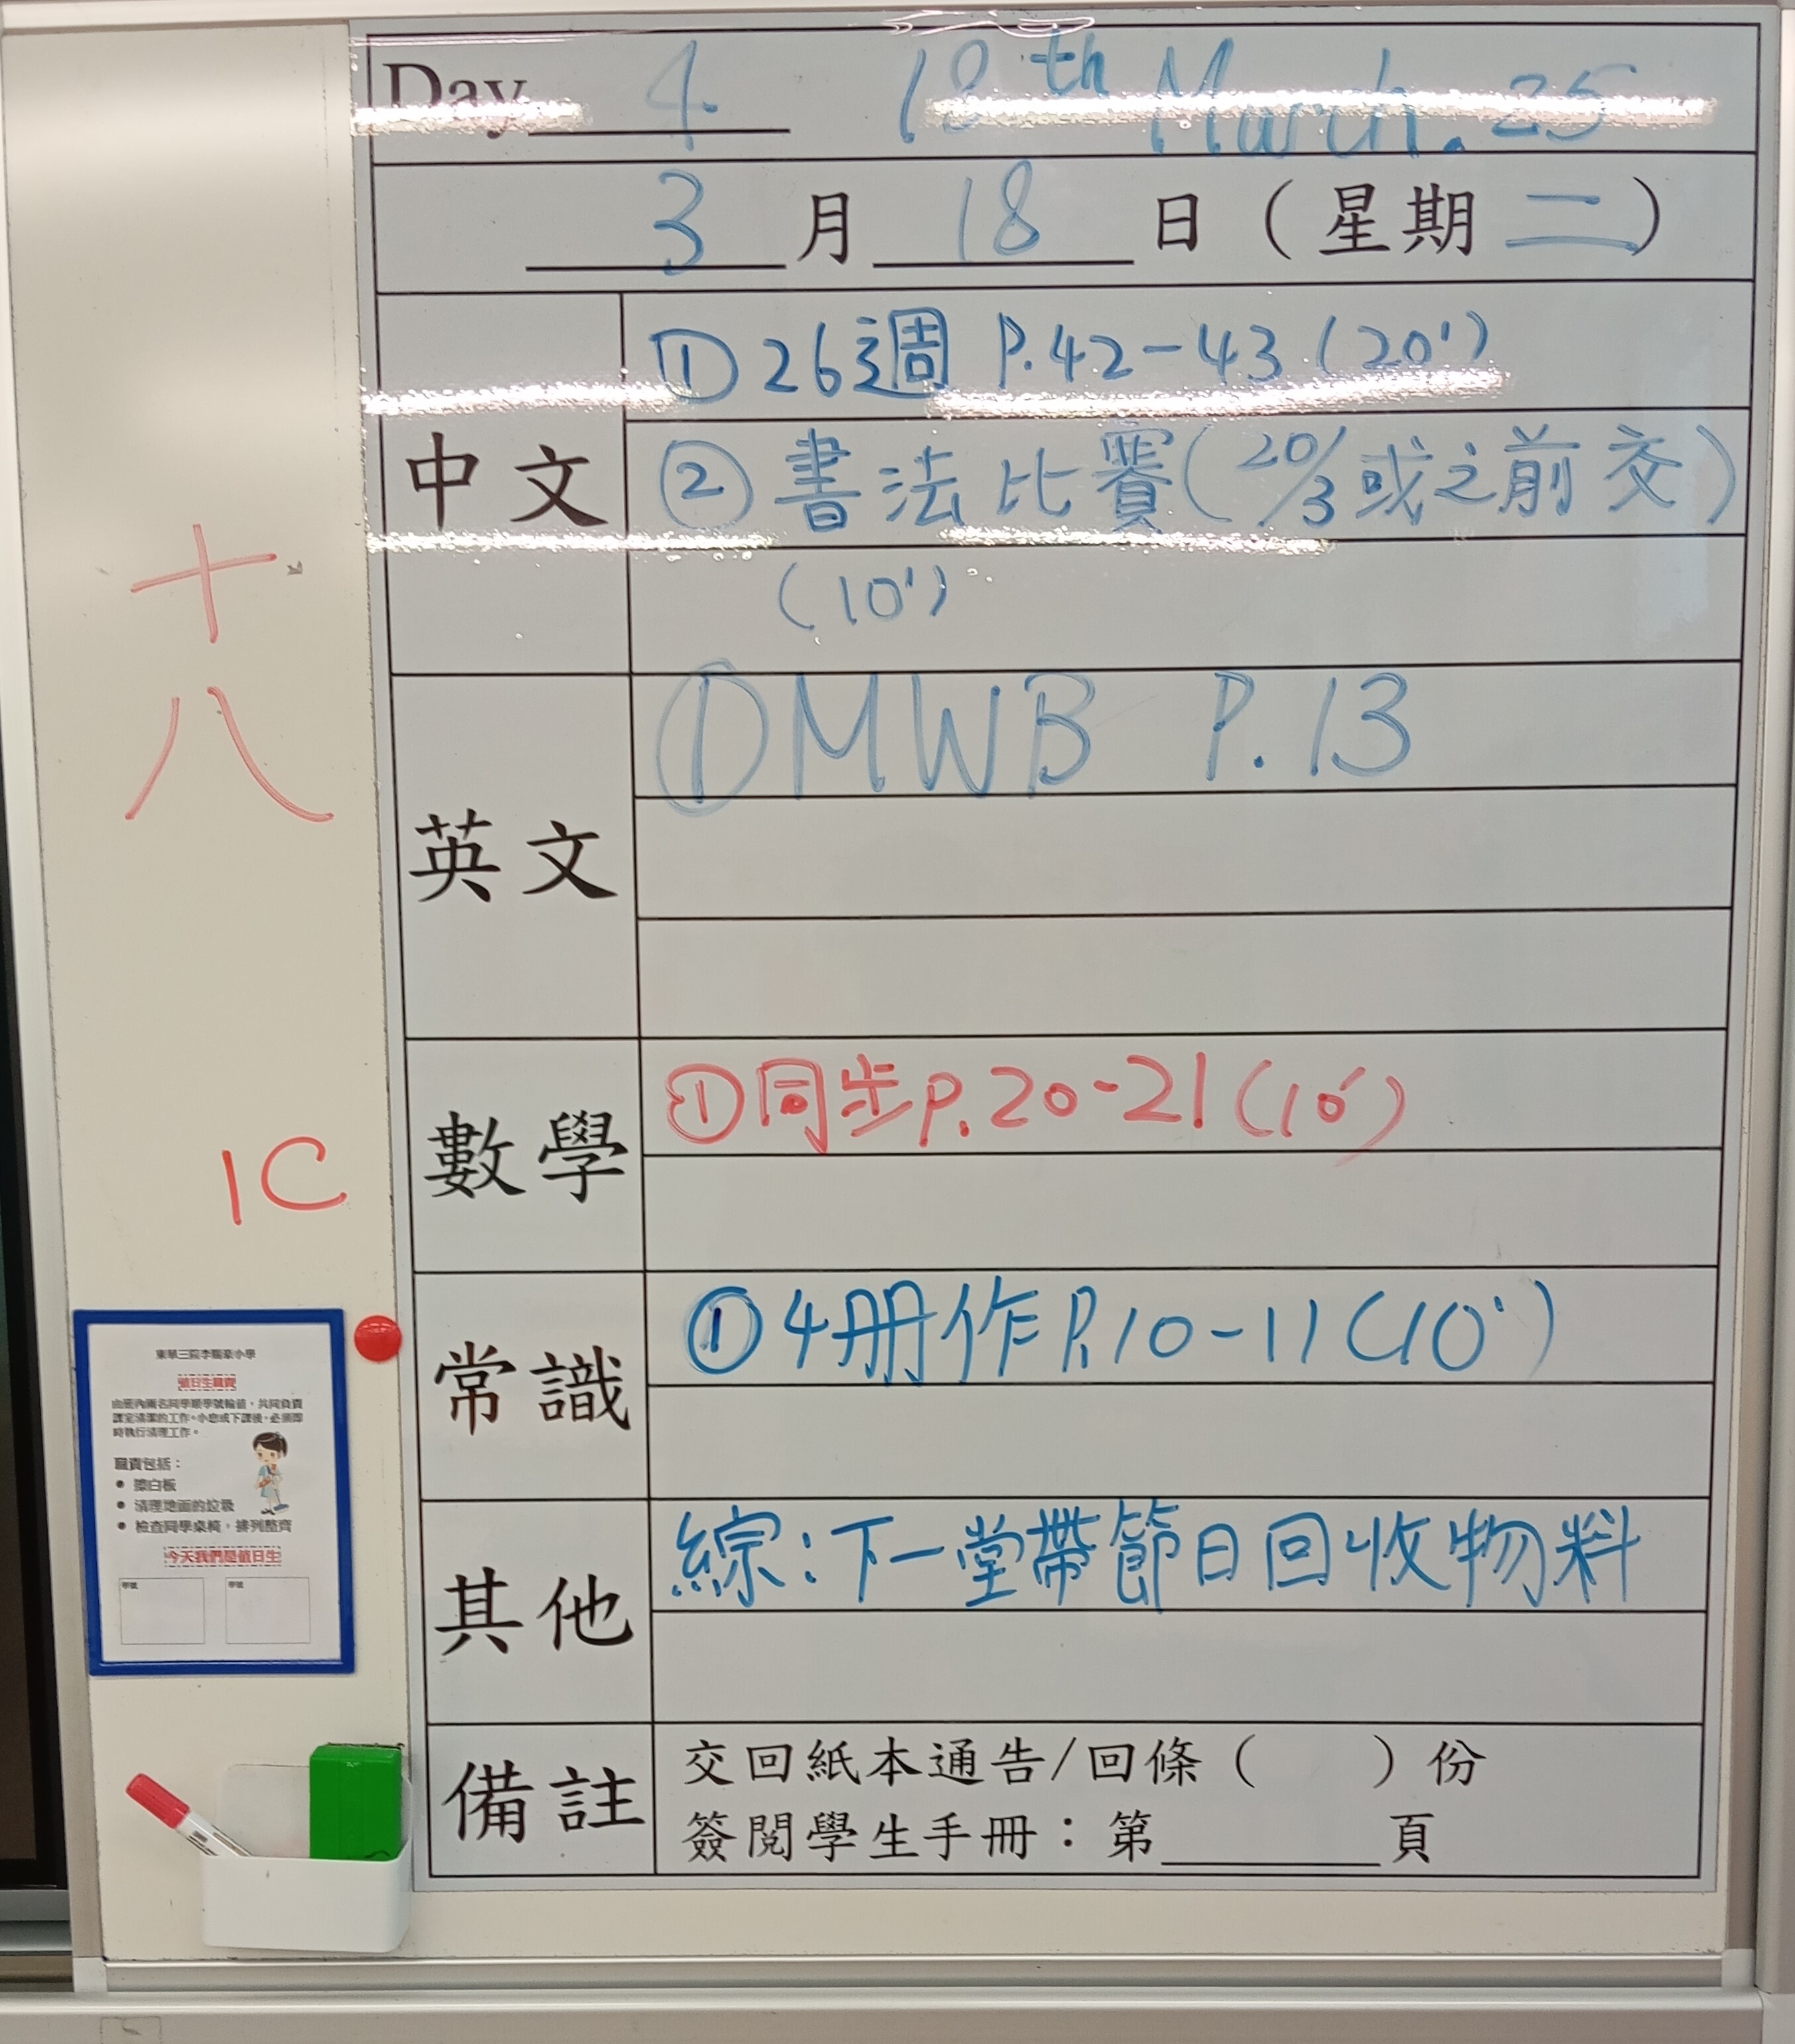 Day 4 18th March. 25
3 月 18 日（星期二）
中文
① 26週 P.42-43 (20')
② 書法比賽 (20/3 或之前交)
(10')
英文
① MWB P.13
數學
① 同步 P.20-21 (10')
常識
① 4冊作 P.10-11 (10')
其他
綜：下一堂帶節日回收物料
備註
交回紙本通告/回條（ ）份
簽閱學生手冊：第 頁
十
八
1C
值日生職責
由班內兩名同學順學號輪值，共同負責
課室清潔的工作。小息或下課後，必須即
時執行清理工作。
職責包括：
• 擦白板
• 清理地面的垃圾
• 檢查同學桌椅，排列整齊
今天我們是值日生
學號 學號